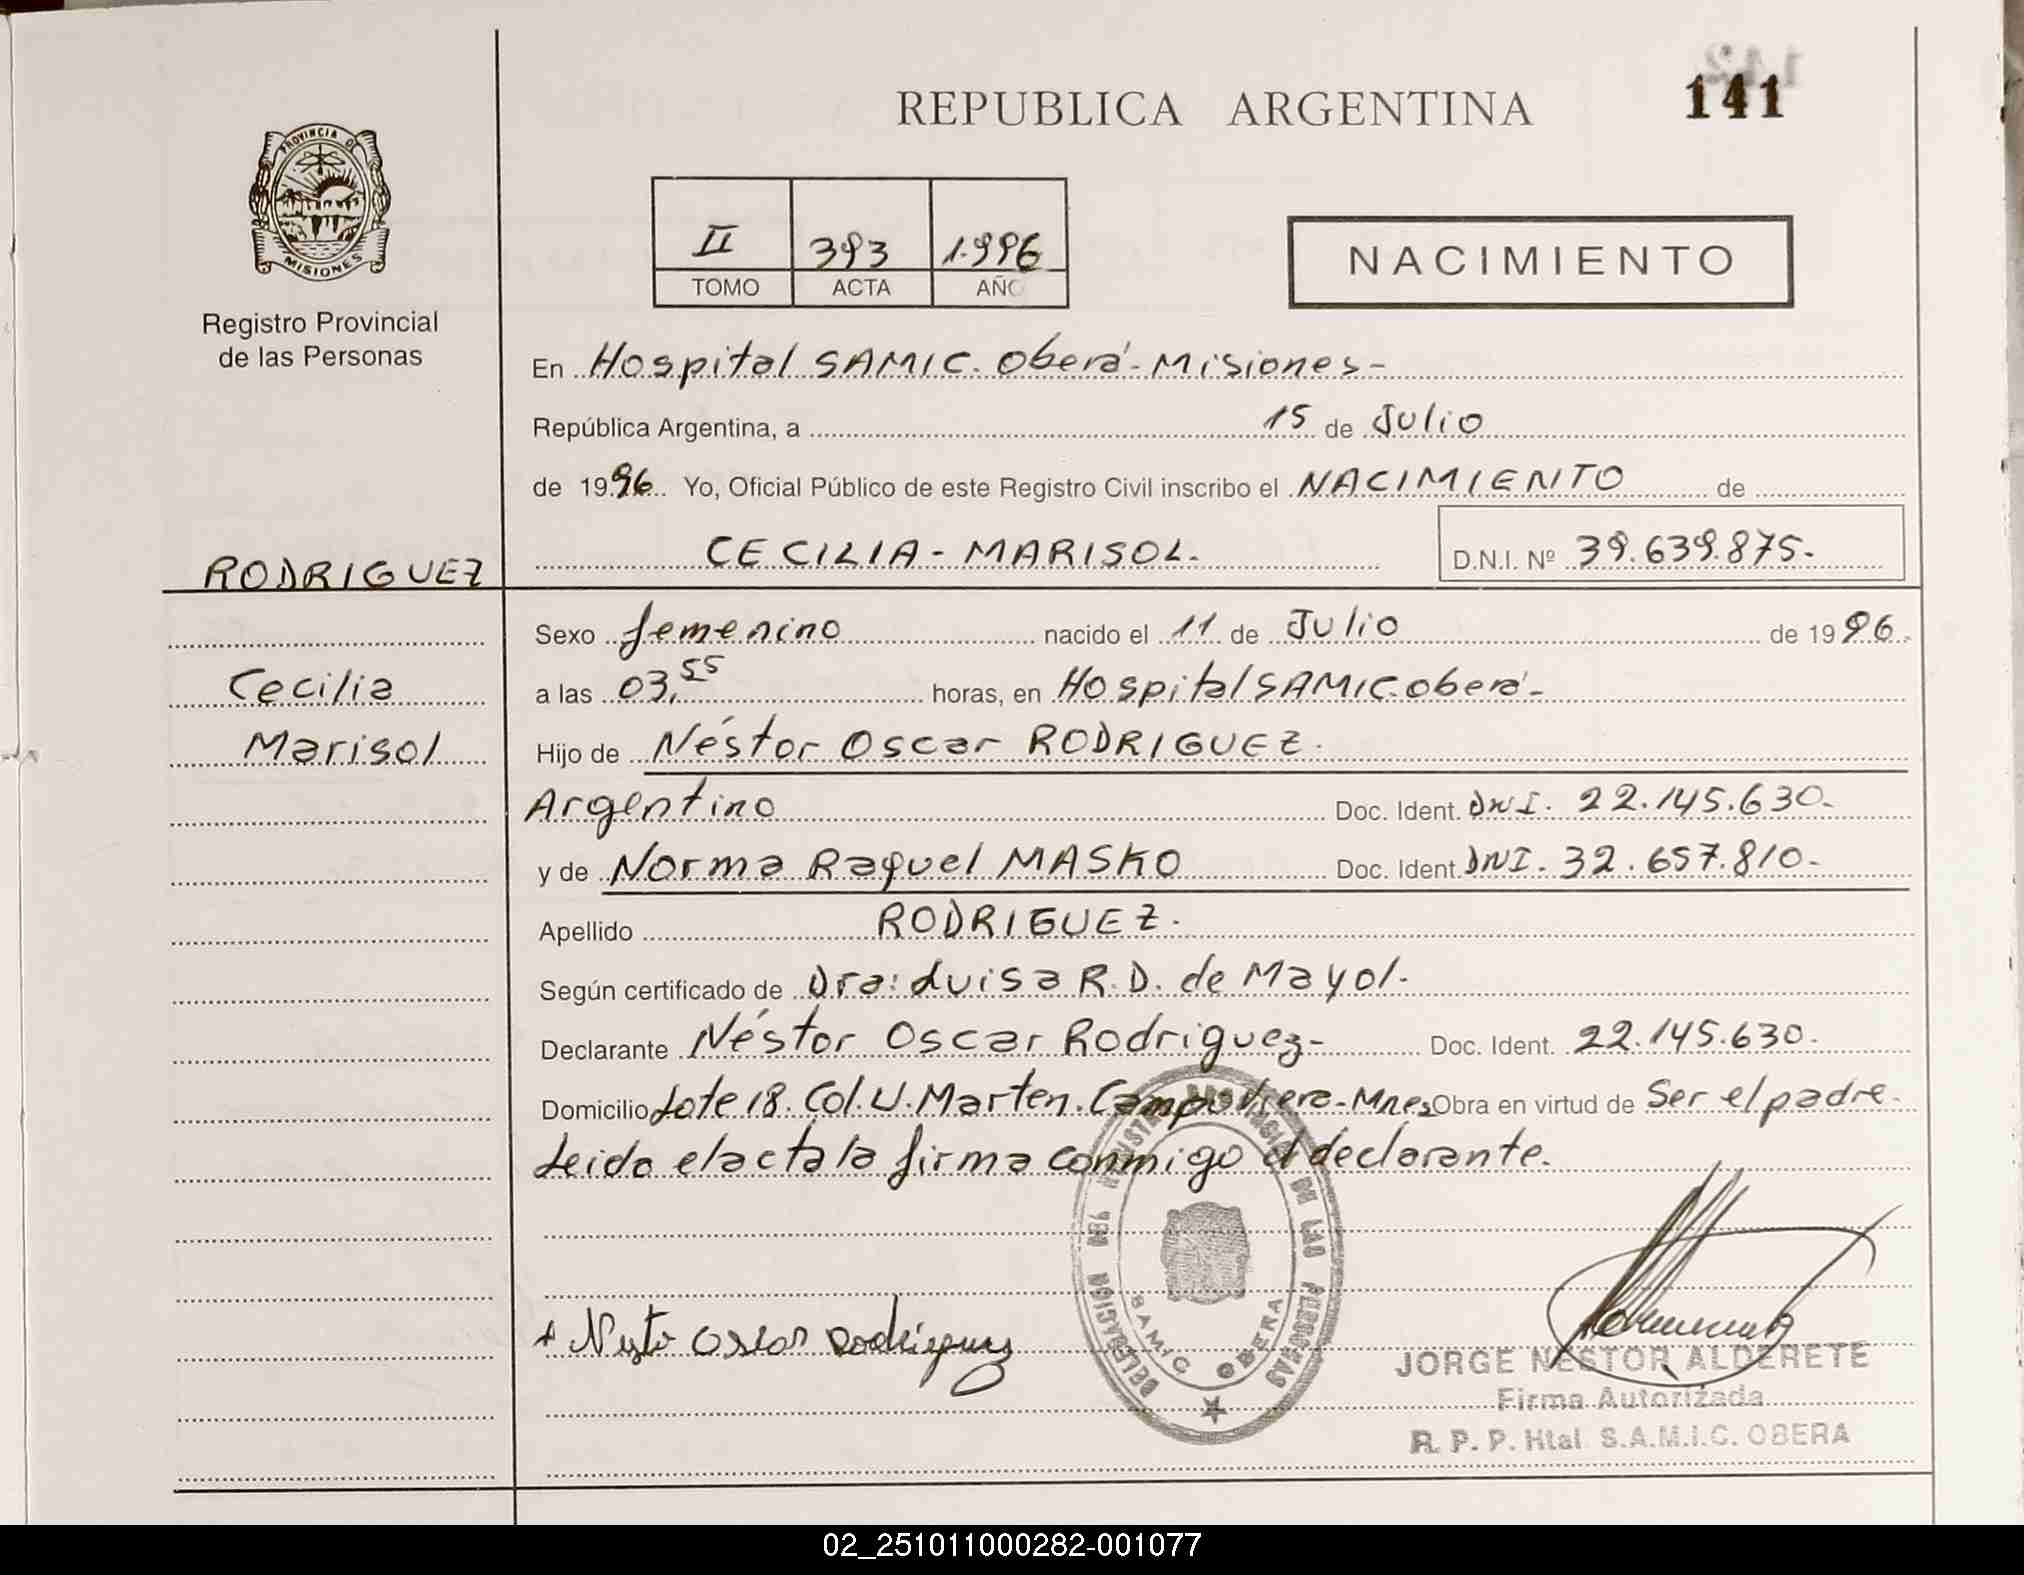 REPUBLICA ARGENTINA
141
PROVINCIA DE
MISIONES
Registro Provincial
de las Personas
II 393 1.996
TOMO ACTA AÑO
NACIMIENTO
En Hospital SAMIC. Oberá - Misiones -
República Argentina, a 15 de Julio
de 1996 Yo, Oficial Público de este Registro Civil inscribo el NACIMIENTO de
CECILIA - MARISOL.
D.N.I. Nº 39.639.875.-
RODRIGUEZ
Cecilia
Marisol
Sexo femenino nacido el 11 de Julio de 1996.
a las 03,55 horas, en Hospital SAMIC. Oberá -
Hijo de Néstor Oscar RODRIGUEZ.
Argentino Doc. Ident. DNI. 22.145.630.-
y de Norma Raquel MASKO Doc. Ident. DNI. 32.657.810.-
Apellido RODRIGUEZ.
Según certificado de Dra: Luisa R. D. de Mayol.
Declarante Néstor Oscar Rodriguez - Doc. Ident. 22.145.630.
Domicilio Lote 18. Col. U. Marten. Campo Viera - Mnes Obra en virtud de Ser el padre.
Leida el acta la firma conmigo el declarante.
DELEGACION DEL REGISTRO PROVINCIAL DE LAS PERSONAS
SAMIC OBERA
Nestor Oscar Rodriguez
JORGE NESTOR ALDERETE
Firma Autorizada
R. P. P. Htal S.A.M.I.C. OBERA
02_251011000282-001077